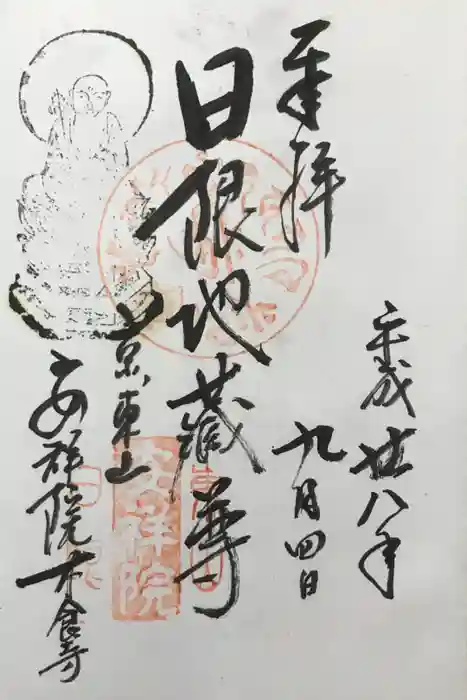 奉拝
平成廿八年
九月四日
日限地蔵尊
京東山
安祥院 木食寺
安祥院